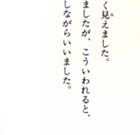 く見えました。
ましたが、こういわれると、
しながらいいました。